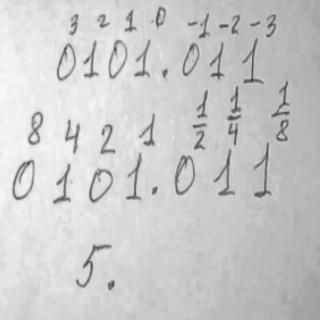 3 2 1 0 -1 -2 -3
0101.011
8 4 2 1 1/2 1/4 1/8
0101.011
5.